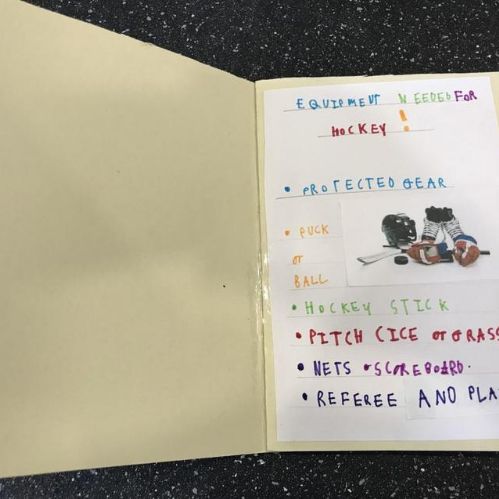 EQUIPMENT NEEDED FOR
HOCKEY !
• PROTECTED GEAR
• PUCK
or
BALL
• HOCKEY STICK
• PITCH CICE or GRASS
• NETS • SCOREBOARD.
• REFEREE AND PLA